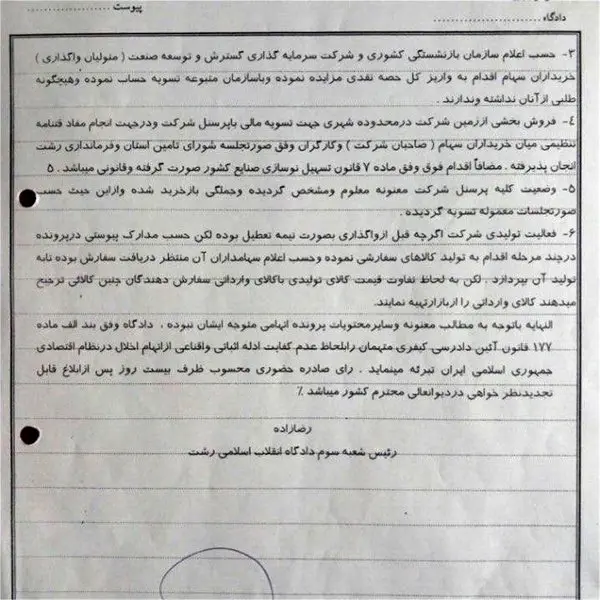 پیوست ........................
دادگاه ........................
۳- حسب اعلام سازمان بازنشستگی کشوری و شرکت سرمایه گذاری گسترش و توسعه صنعت ( متولیان واگذاری )
خریداران سهام اقدام به واریز کل حصه نقدی مزایده نموده وباسازمان متبوعه تسویه حساب نموده وهیچگونه
طلبی ازآنان نداشته وندارند .
٤- فروش بخشی اززمین شرکت درمحدوده شهری جهت تسویه مالی باپرسنل شرکت ودرجهت انجام مفاد قتنامه
تنظیمی میان خریداران سهام ( صاحبان شرکت ) وکارگران وفق صورتجلسه شورای تامین استان وفرمانداری رشت
انجان پذیرفته . مضافاً اقدام فوق وفق ماده ۷ قانون تسهیل نوسازی صنایع کشور صورت گرفته وقانونی میباشد . ۵
۵- وضعیت کلیه پرسنل شرکت معنونه معلوم ومشخص گردیده وجملگی بازخرید شده وازاین حیث حسب
صورتجلسات معموله تسویه گردیده .
۶- فعالیت تولیدی شرکت اگرچه قبل ازواگذاری بصورت نیمه تعطیل بوده لکن حسب مدارک پیوستی درپرونده
درچند مرحله اقدام به تولید کالاهای سفارشی نموده وحسب اعلام سهامداران آن منتظر دریافت سفارش بوده تابه
تولید آن بپردازد . لکن به لحاظ تفاوت قیمت کالای تولیدی باکالای وارداتی سفارش دهندگان چنین کالائی ترجیح
میدهند کالای وارداتی را ازبازارتهیه نمایند.
النهایه باتوجه به مطالب معنونه وسایرمحتویات پرونده اتهامی متوجه ایشان نبوده ، دادگاه وفق بند الف ماده
۱۷۷ قانون آئین دادرسی کیفری متهمان رابلحاظ عدم کفایت ادله اثباتی واقناعی ازاتهام اخلال درنظام اقتصادی
جمهوری اسلامی ایران تبرئه مینماید . رای صادره حضوری محسوب ظرف بیست روز پس ازابلاغ قابل
تجدیدنظر خواهی دردیوانعالی محترم کشور میباشد ٪
رضازاده
رئیس شعبه سوم دادگاه انقلاب اسلامی رشت